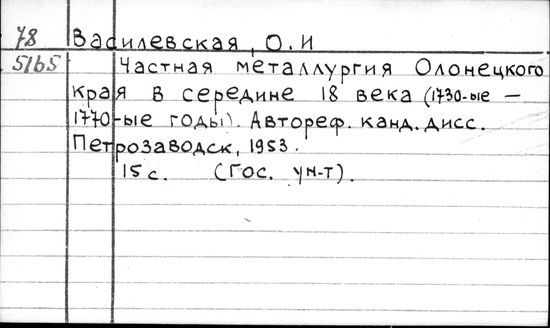 78 Василевская, О. И
5165 Частная металлургия Олонецкого
края в середине 18 века (1730-ые —
1770-ые годы). Автореф. канд. дисс.
Петрозаводск, 1953.
15 с. (Гос. ун-т).